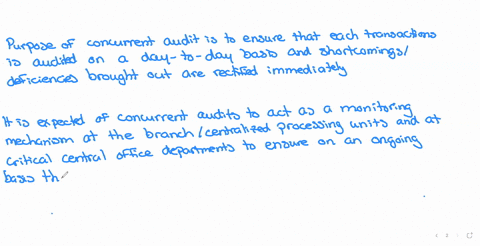 Purpose of concurrent audit is to ensure that each transactions
is audited on a day-to-day basis and shortcomings/
deficiences brought out are rectified immediately
It is expected of concurrent audits to act as a monitoring
mechanism at the branch/centralized processing units and at
critical central office departments to ensure on an ongoing
basis th